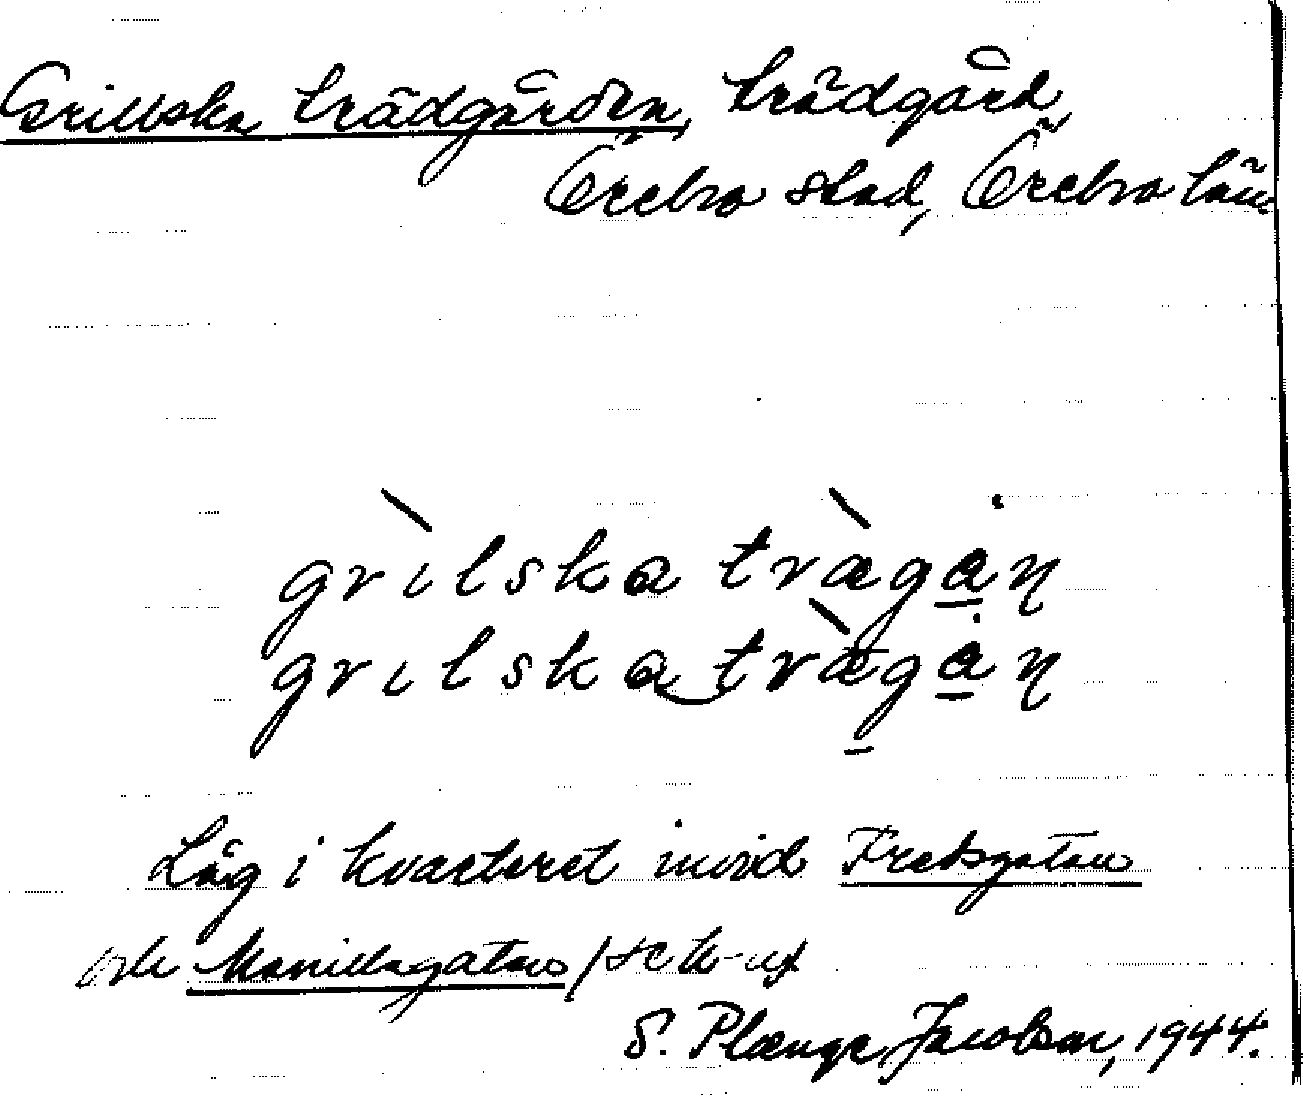 Grillska trädgården, trädgård,
Örebro stad, Örebro län
grìlska træ̀gȧ̱ɳ
grılska‿træ̀gȧ̱ɳ
Låg i kvarteret invid Fredsgatan
och Manillagatan /se
S. Plænge Jacobson, 1944.